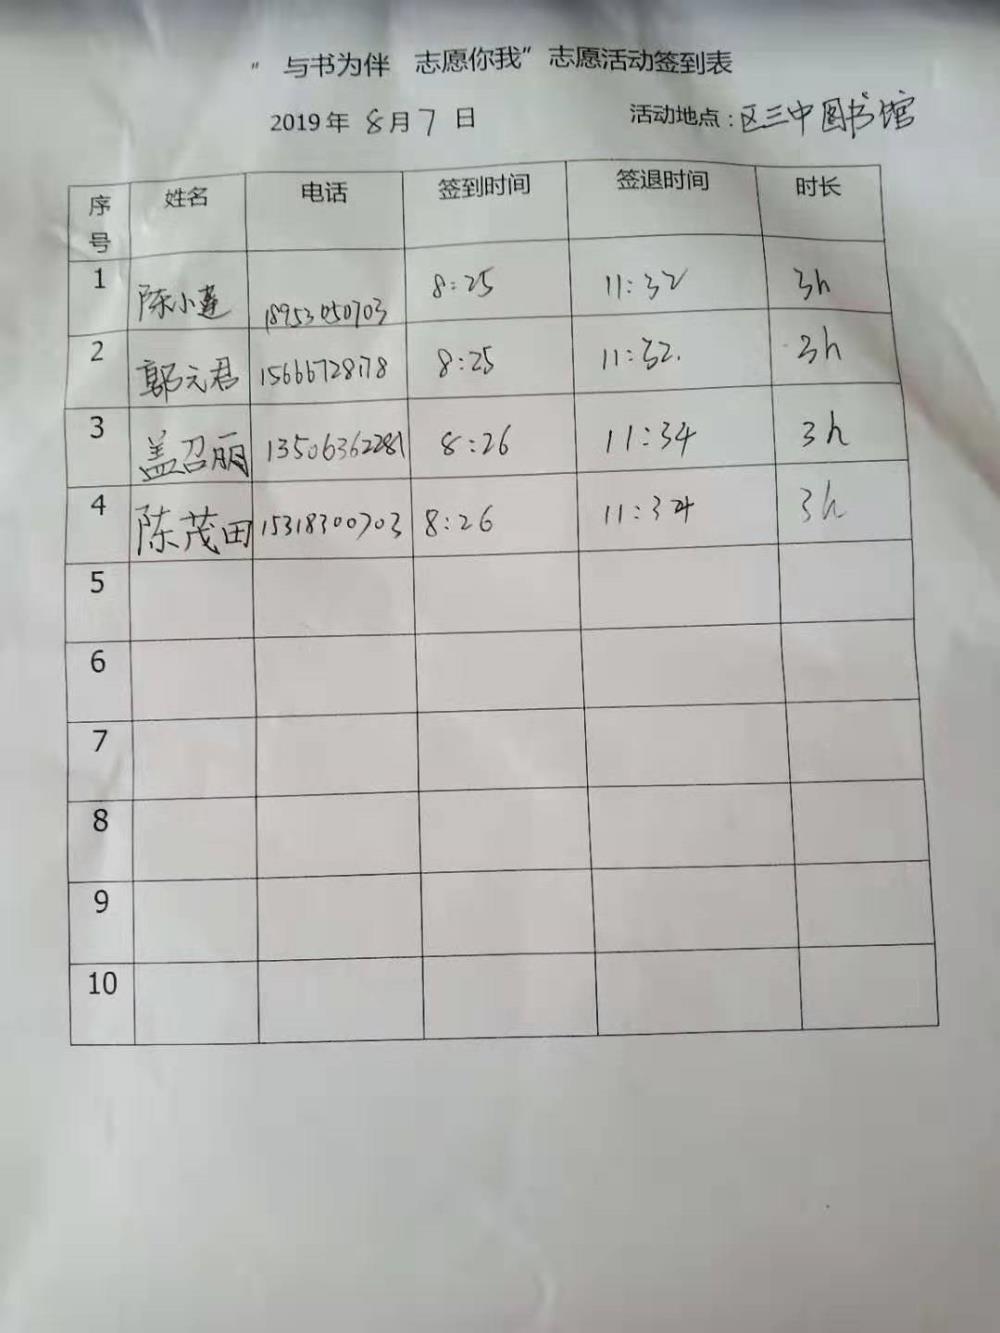 “ 与书为伴 志愿你我”志愿活动签到表
2019年 8月7日 活动地点：区三中图书馆
序号 姓名 电话 签到时间 签退时间 时长
1 陈小莲 8:25 11:32 3h
2 郭元君 15666728178 8:25 11:32. 3h
3 盖召丽 13506362281 8:26 11:34 3h
4 陈茂田 15318300703 8:26 11:34 3h
5
6
7
8
9
10